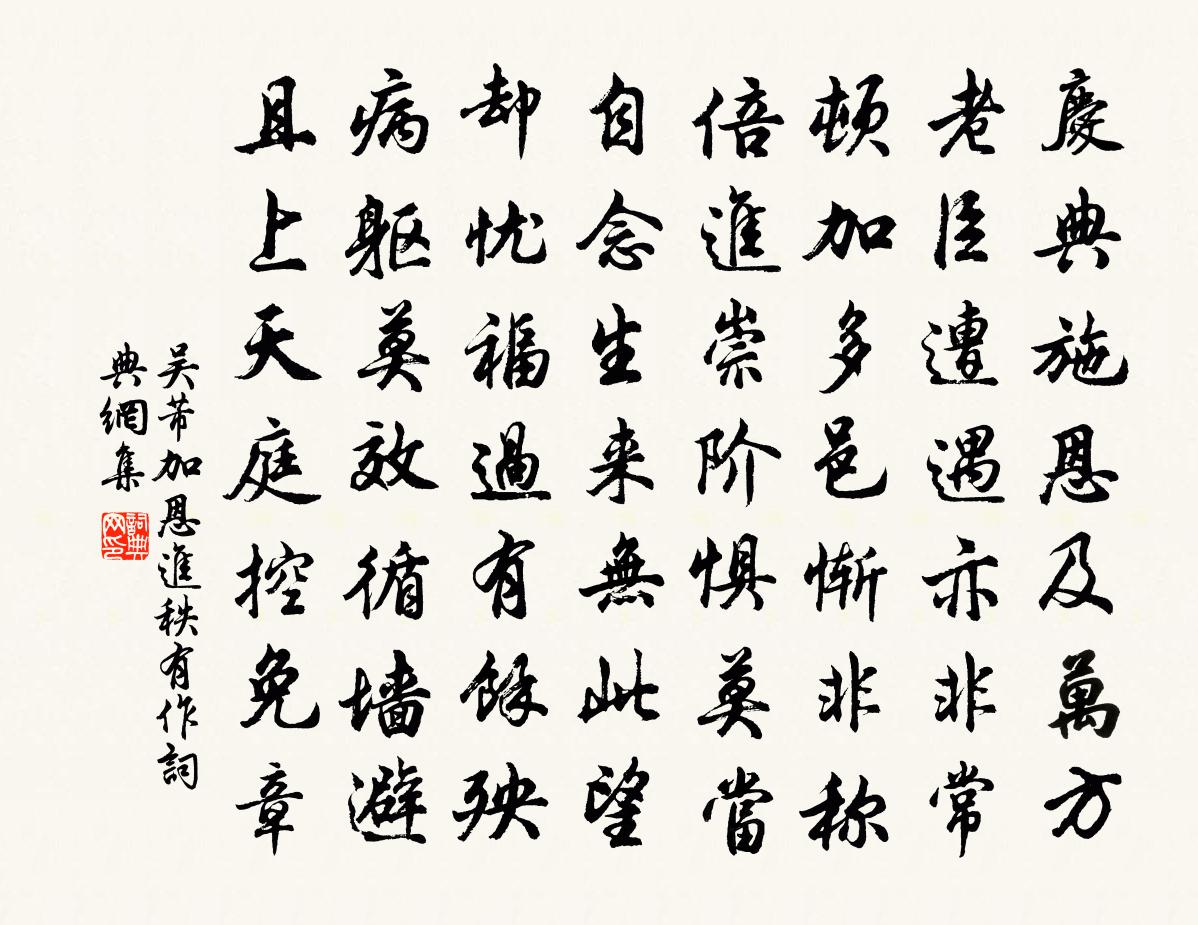 慶典施恩及萬方
老臣遭遇亦非常
頓加多邑慚非称
倍進崇阶惧莫當
自念生来無此望
却忧福過有餘殃
病躯莫效循墙避
且上天庭控免章
吴芾加恩進秩有作詞
典網集
詞典网印